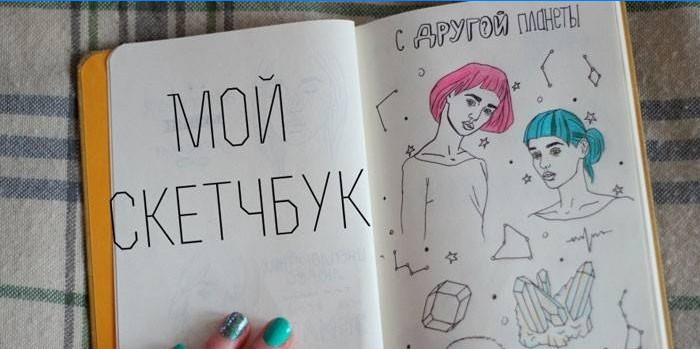 МОЙ
СКЕТЧБУК
С ДРУГОЙ ПЛАНЕТЫ